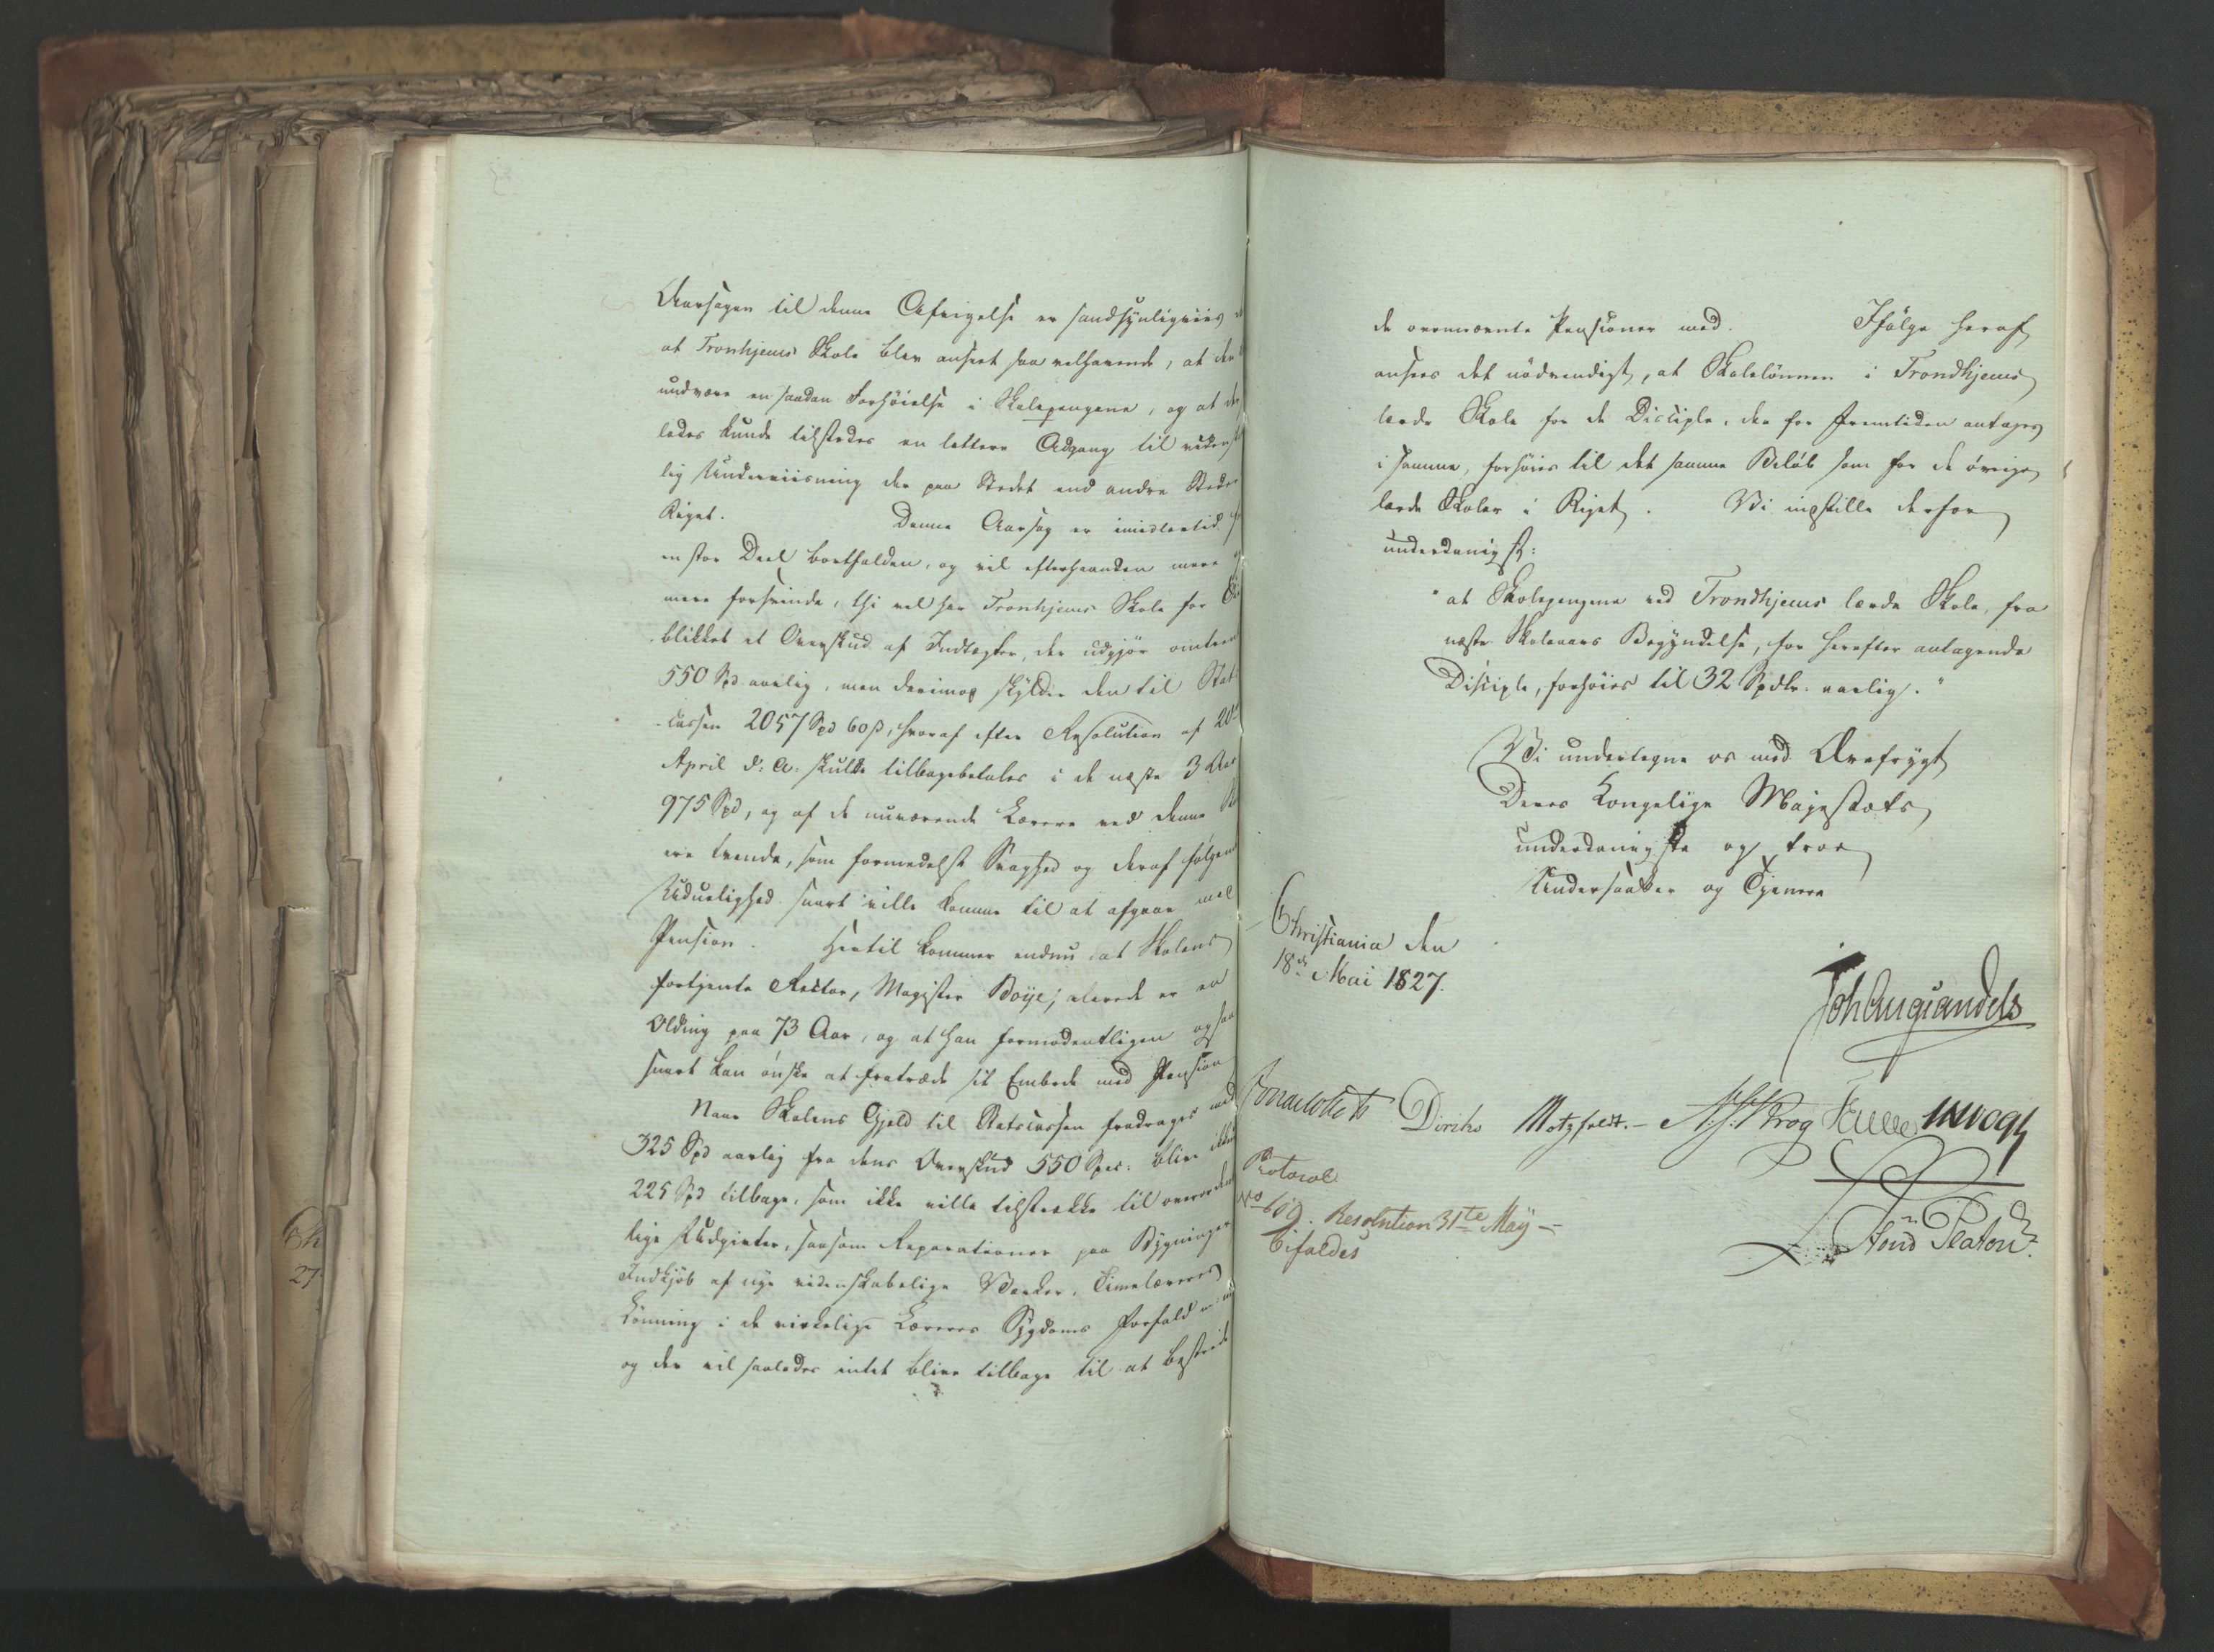 Aarsagen til denne Afvigelse er sandsynligviis
at Tronhjems Skole blev anseet saa velhavende, at den
undvære en saadan Forhöielse i Skolepengene, og at der
ledes kunde tilstedes en lettere Adgang til videnska
lig Underviisning der paa Stedet end andre Steder
Riget. Denne Aarsag er imidlertid for
en stor Deel bortfalden, og vil efterhaanden mere
mere forsvinde, thi vel har Tronhjems Skole for Öi
blikket et Overskud af Indtægter, der udgjör omtren
550 Spd aarlig, men derimod skylder den til Stat
cassen 2057 Spd 60 ß, hvoraf efter Resolution af 20de
April d: A: skulde tilbagebetales i de næste 3 Aar
975 Spd, og af de nuværende Lærere ved denne
ere tvende, som formedelst Svaghed og deraf fölgen
Uduelighed snart ville komme til at afgaae med
Pension. Hertil kommer endnu at Skolens
fortjente Rector, Magister Boije, allerede er en
Olding paa 73 Aar, og at han formodentligen ogsaa
snart kan önske at fratræde sit Embede med Pension
Naar Skolens Gjeld til Statscassen fradrages med
325 Spd aarlig fra dens Overskud 550 Spec: bliver ikkun
225 Spd tilbage, som ikke ville tilstrække til overorden
lige Udgivter, saasom Reparationer paa Bygninger
Indkjöb af nye videnskabelige Værker, Timelæreres
Lönning i de virkelige Læreres Sygdoms Forfald
og der vil saaledes intet blive tilbage til at bestride
de ovennævnte Pensioner med. Ifölge heraf
ansees det nödvendigt, at Skolelönnen i Trondhjems
lærde Skole for de Disciple, der for Fremtiden antages
i samme, forhöies til det samme Belöb som for de övrige
lærde Skoler i Riget. Vi indstille derfor
underdanigst:
"at Skolepengene ved Trondhjems lærde Skole, fra
næste Skoleaars Begyndelse, for herefter antagende
Disciple, forhöies til 32 Spdlr. aarlig."
Vi undertegne os med Ærefrygt
Deres Kongelige Majestæts
underdanigste og troe
Undersaatter og Tjenere
Christiania den
18de Mai 1827.
Joh Aug Sandels
Collett Diriks Motzfeldt. - Krog Vogt
Protocol
No 619. Resolution 31te Maÿ -
bifaldes
von Platon.